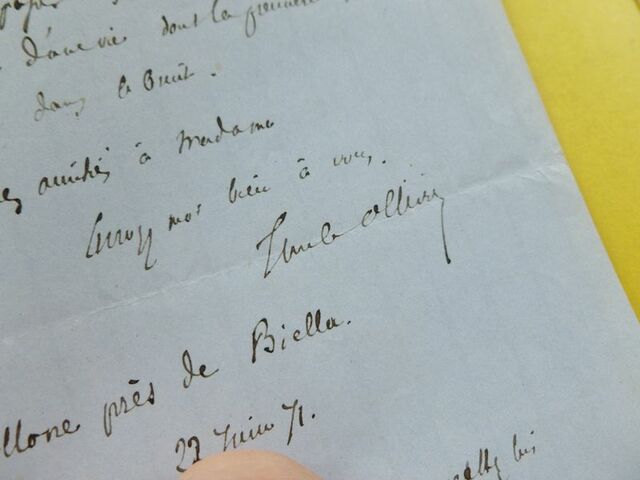 d'une vie dont la première
dans le bruit.
amitiés à Madame
Croyez moi bien à vous.
Emile Ollivier
llone près de Biella.
22 Juin 71.
bis